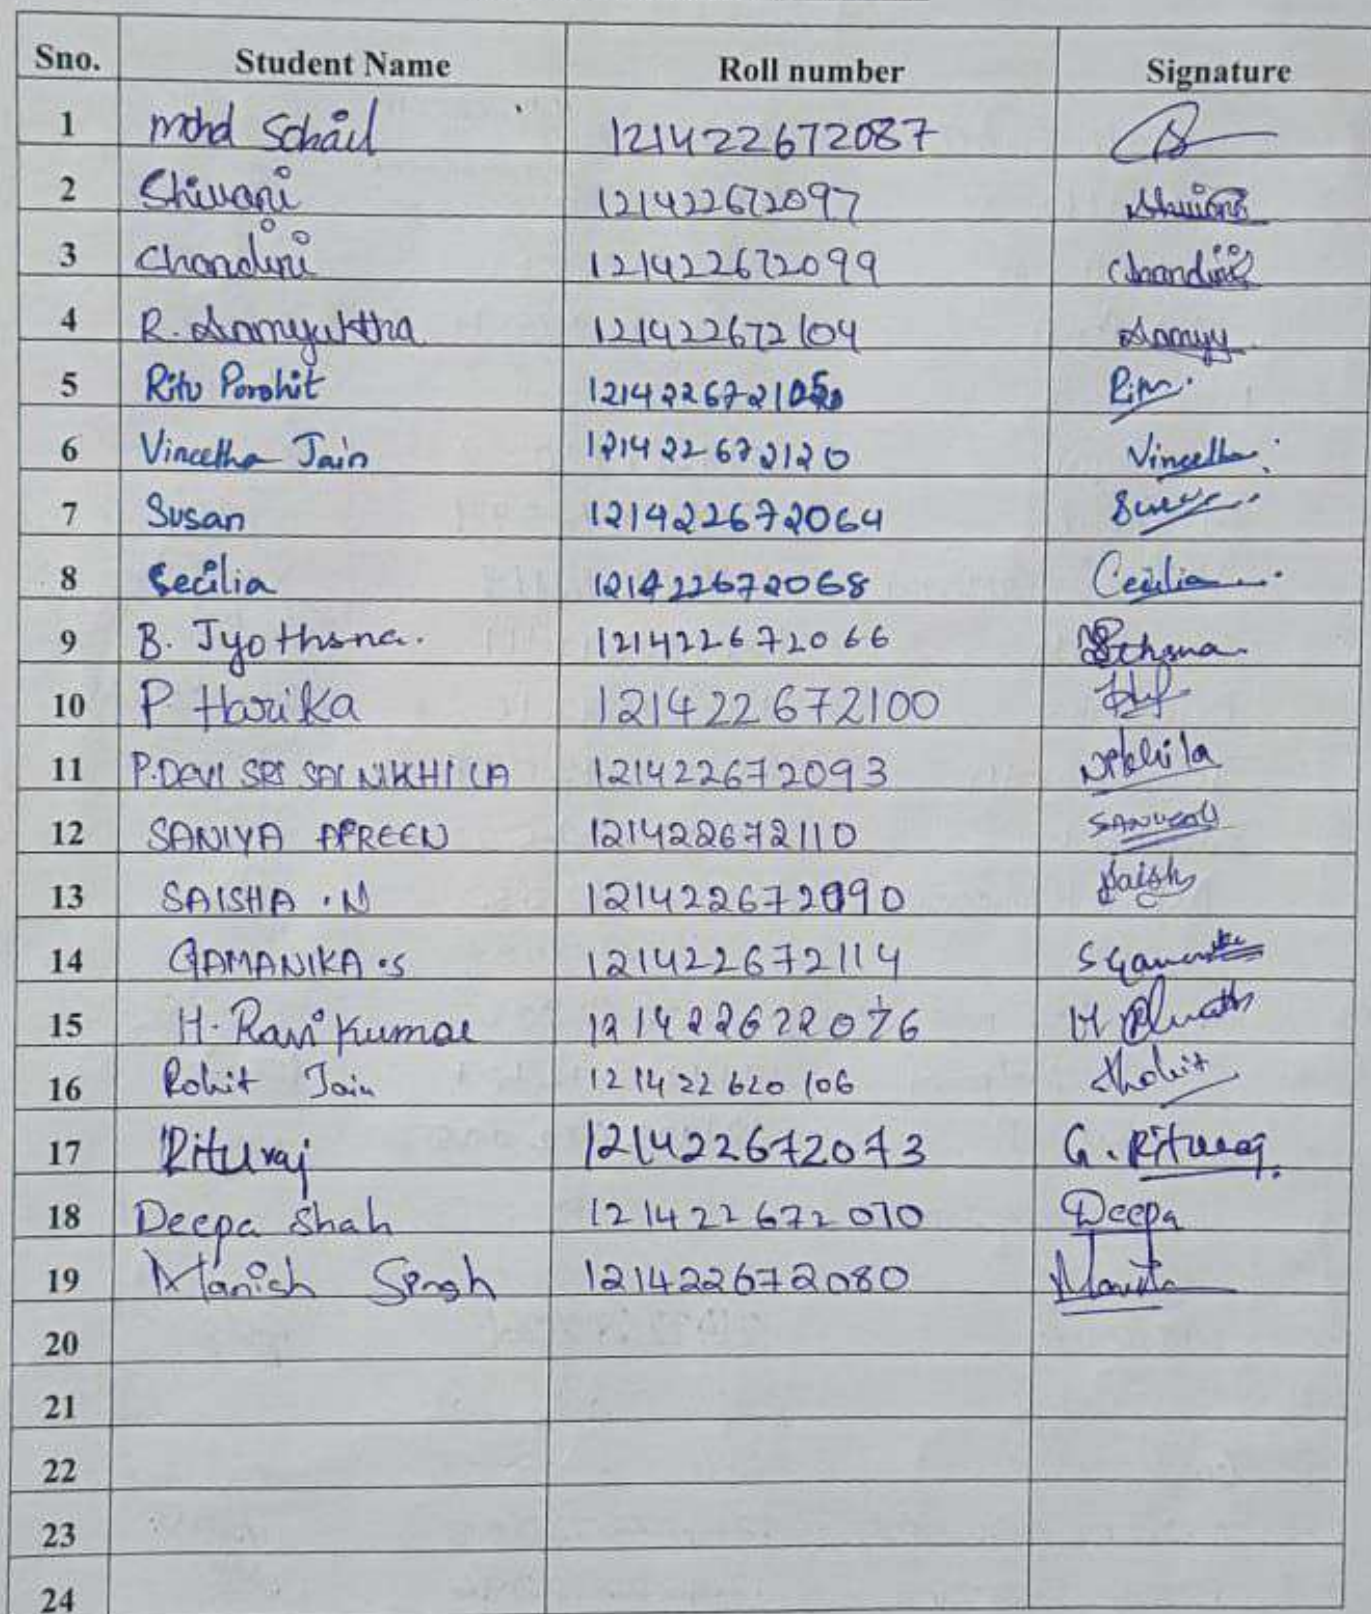 Sno. Student Name Roll number Signature
1 Mohd Sohail 121422672087
2 Shivani 121422672097 Shivani
3 Chandini 121422672099 Chandini
4 R. Samyuktha 121422672104 Samyu
5 Ritu Porohit 121422672105
6 Vineetha Jain 121422672120 Vineetha
7 Susan 121422672064
8 Secilia 121422672068 Cecilia
9 B. Jyothsna. 121422672066
10 P Harika 121422672100
11 P.DEVI SRI SAI NIKHILA 121422672093 Nikhila
12 SANIYA AFREEN 121422672110
13 SAISHA .N 121422672090 Saish
14 GAMANIKA .S 121422672114
15 H. Ravi Kumar 121422672076
16 Rohit Jain 121422620106 Rohit
17 Rituraj 121422672073 G. Rituraj.
18 Deepa Shah 121422672070 Deepa
19 Manish Singh 121422672080
20
21
22
23
24